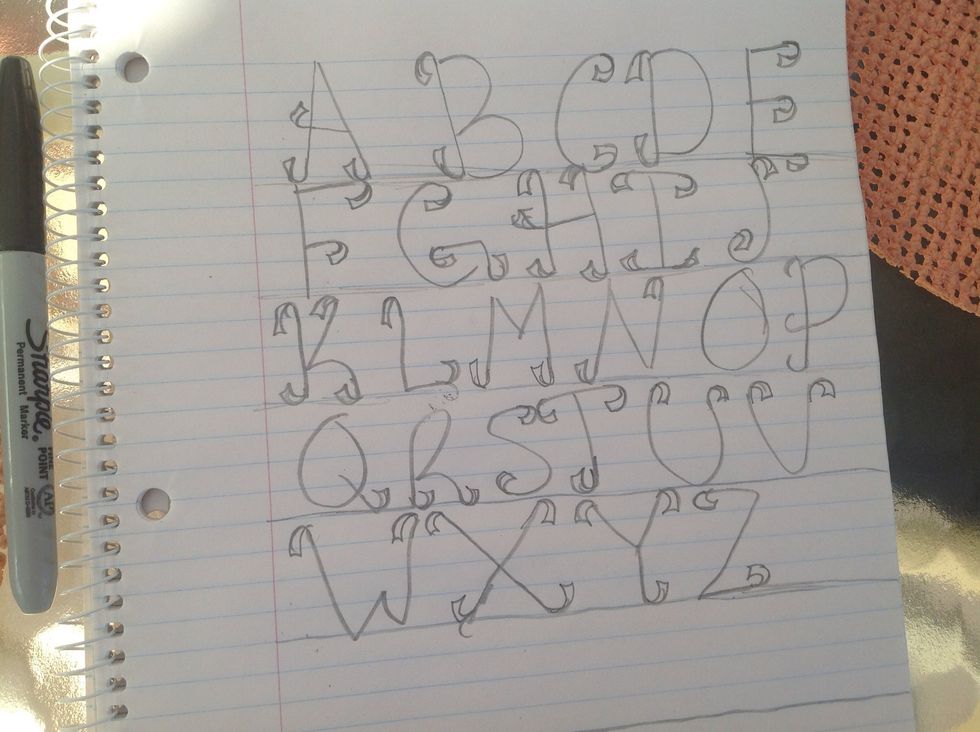 A B C D E
F G H I J
K L M N O P
Q R S T U V
W X Y Z
Sharpie.
Permanent Marker
FINE POINT